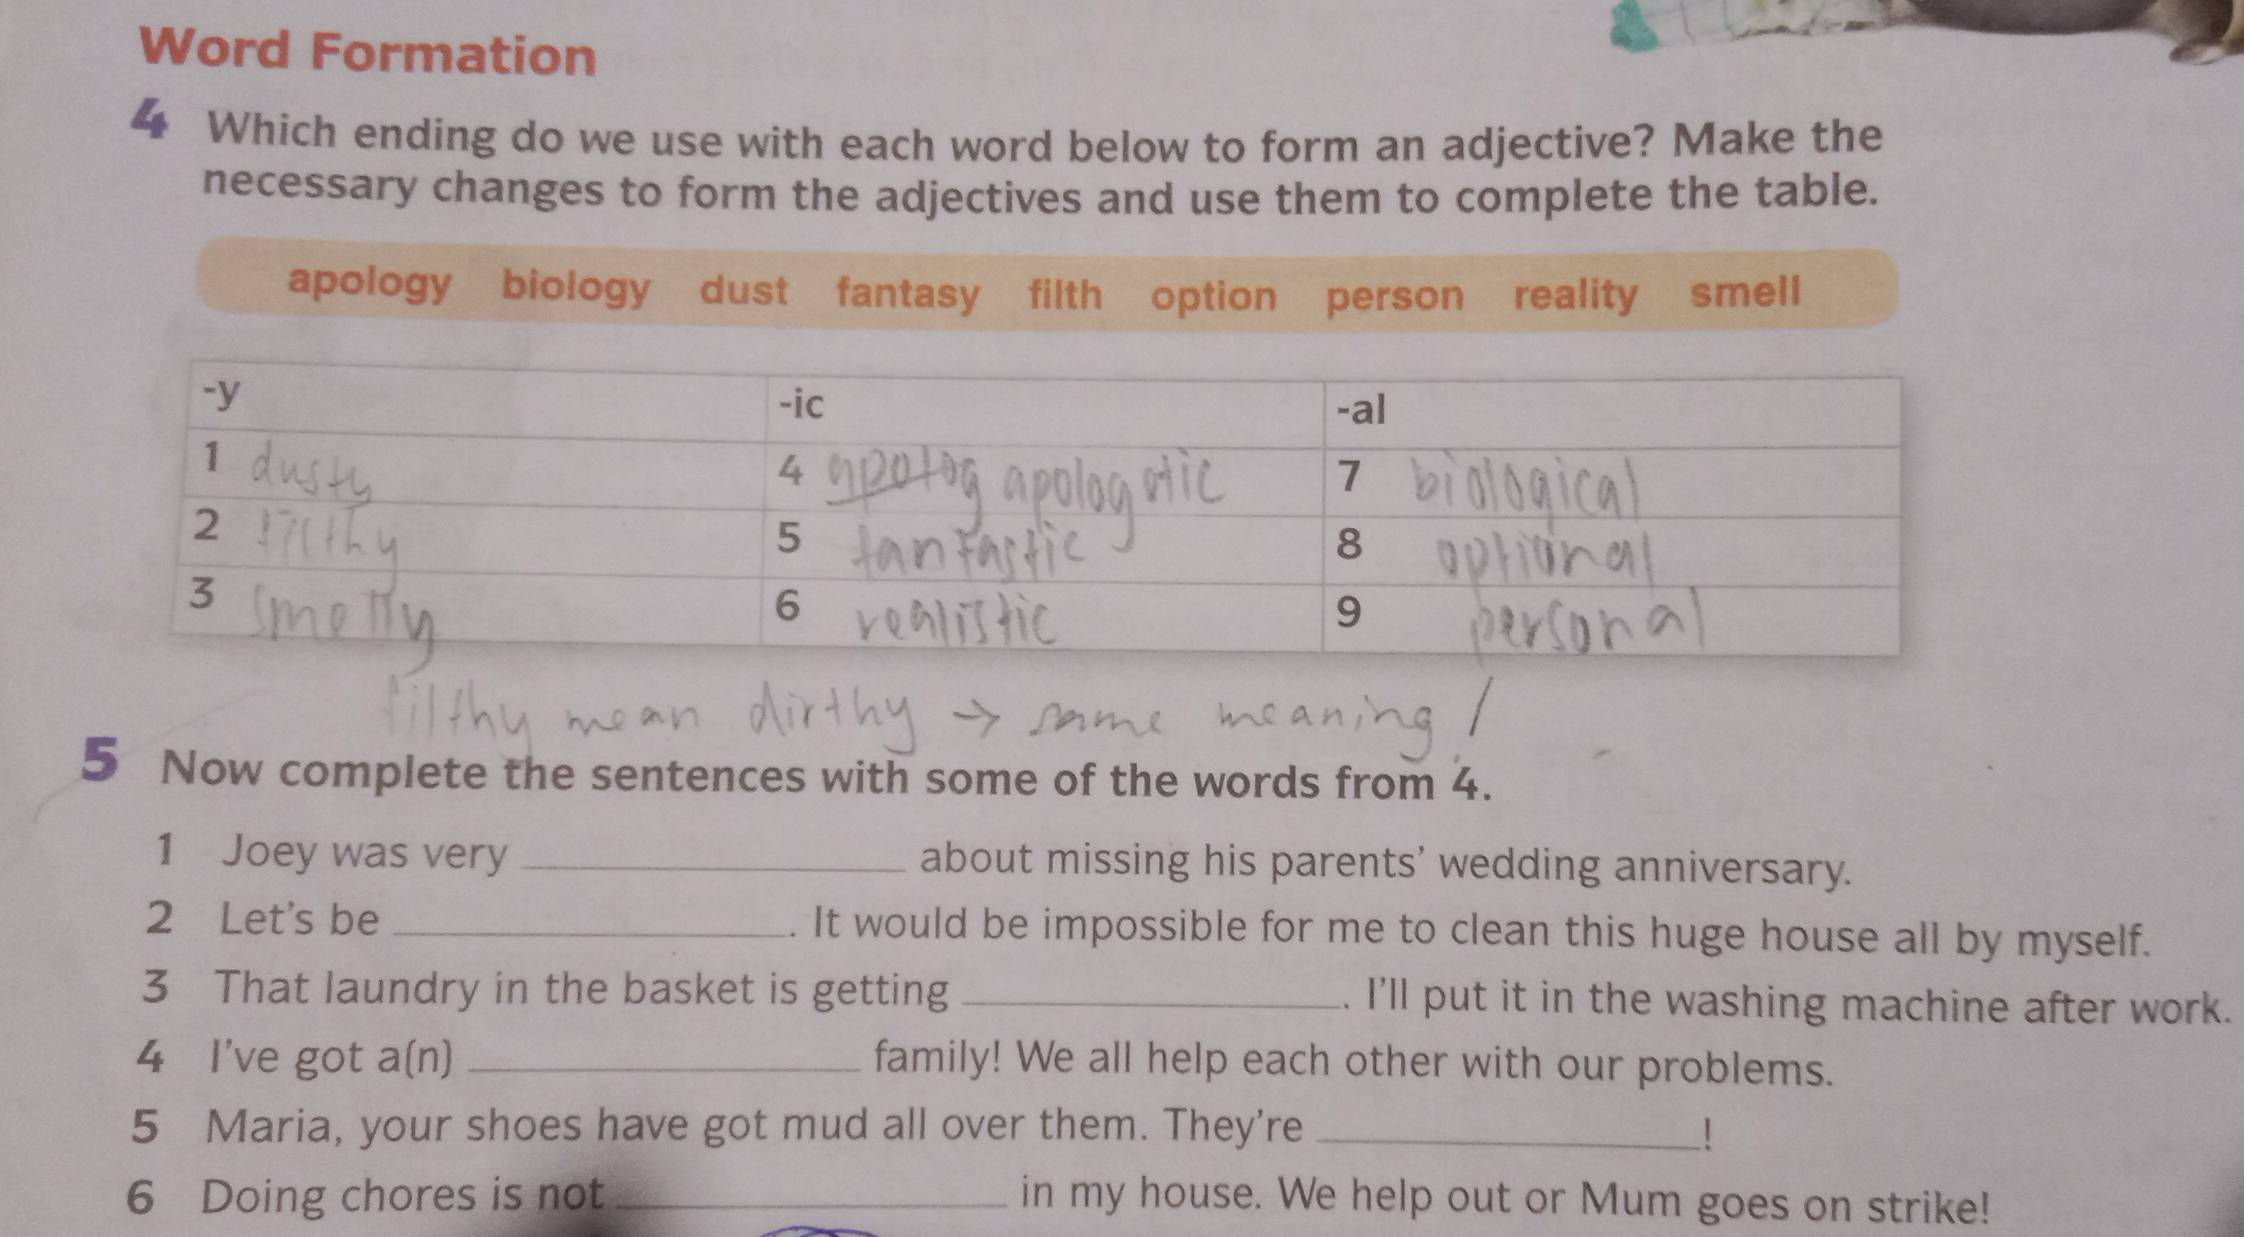 Word Formation
4 Which ending do we use with each word below to form an adjective? Make the
necessary changes to form the adjectives and use them to complete the table.
apology biology dust fantasy filth option person reality smell
-y -ic -al
1 dusty 4 apolog apologetic 7 biological
2 filthy 5 fantastic 8 optional
3 smelly 6 realistic 9 personal
filthy mean dirthy → same meaning!
5 Now complete the sentences with some of the words from 4.
1 Joey was very ______ about missing his parents' wedding anniversary.
2 Let's be ______. It would be impossible for me to clean this huge house all by myself.
3 That laundry in the basket is getting ______. I'll put it in the washing machine after work.
4 I've got a(n) ______ family! We all help each other with our problems.
5 Maria, your shoes have got mud all over them. They're ______!
6 Doing chores is not ______ in my house. We help out or Mum goes on strike!